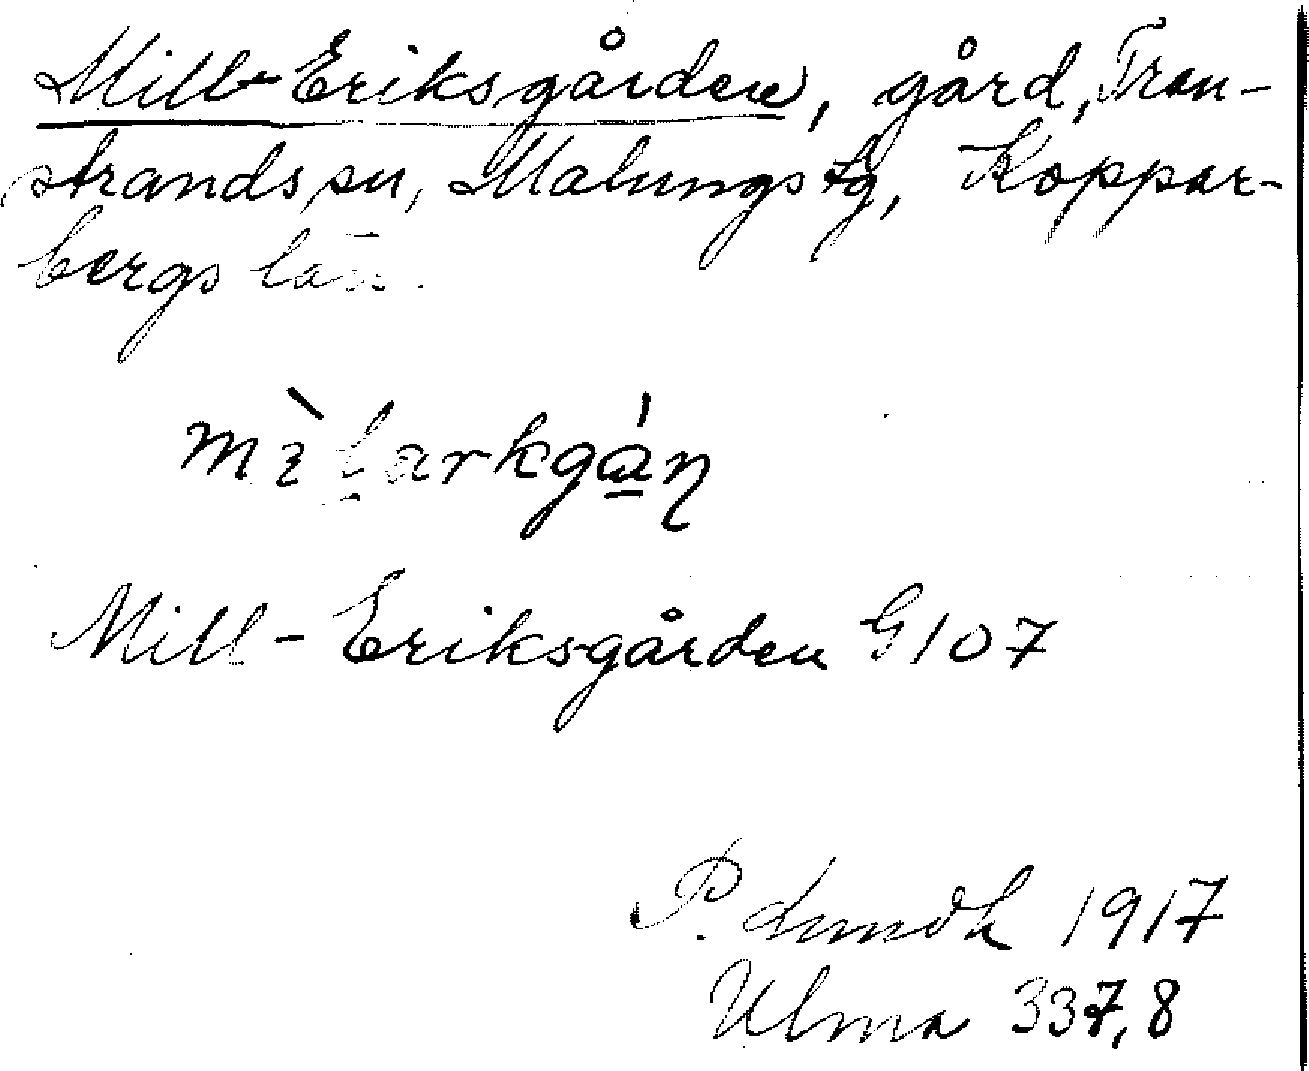 Mill-Eriksgården, gård, Tran-
strands sn, Malungs tg, Koppar-
bergs län.
Mill-Eriksgården G107
P. Lindh 1917
Ulma 337,8